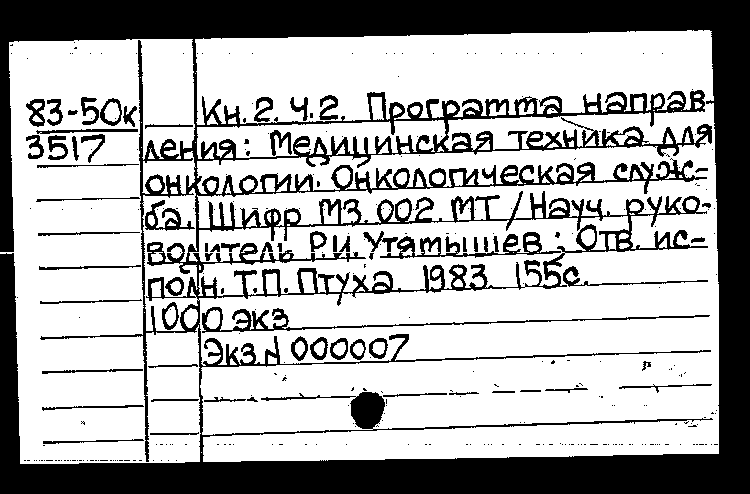 83-50к Кн. 2. Ч. 2. Программа направ-
3517 ления: Медицинская техника для
онкологии. Онкологическая служ-
ба. Шифр МЗ. 002. МТ / Науч. руко-
водитель Р.И. Утямышев ; Отв. ис-
полн. Т.П. Птуха. 1983. 155с.
1000 экз
Экз. N 000007